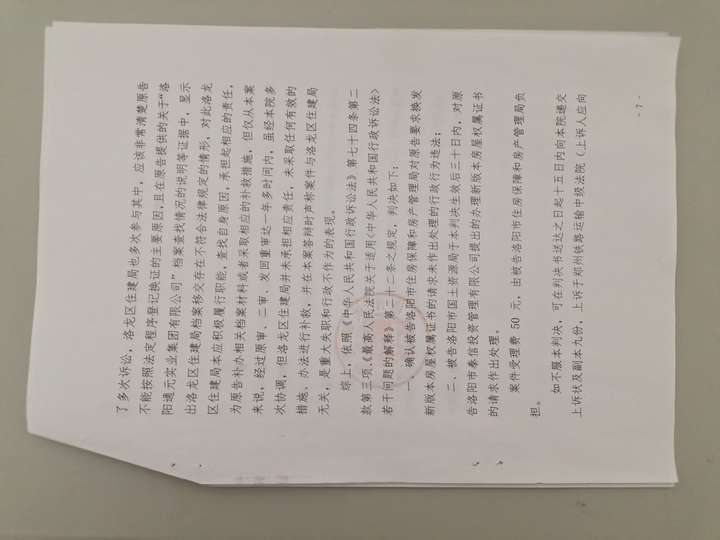 了多次诉讼，洛龙区住建局也多次参与其中，应该非常清楚原告
不能按照法定程序登记换证的主要原因，且在原告提供的关于“洛
阳通元实业集团有限公司”档案查找情况的说明等证据中，显示
出洛龙区住建局档案移交存在不符合法律规定的情形，对此洛龙
区住建局本应积极履行职能，查找自身原因，承担起相应的责任，
为原告补办相关档案材料或者采取相应的补救措施，但仅从本案
来说，经过原审、二审、发回重审达一年多时间内，虽经本院多
次协调，但洛龙区住建局并未承担相应责任，未采取任何有效的
措施、办法进行补救，并在本案答辩时声称案件与洛龙区住建局
无关，是重大失职和行政不作为的表现。
综上，依照《中华人民共和国行政诉讼法》第七十四条第二
款第三项《最高人民法院关于适用〈中华人民共和国行政诉讼法〉
若干问题的解释》第二十二条之规定，判决如下：
一、确认被告洛阳市住房保障和房产管理局对原告要求换发
新版本房屋权属证书的请求未作出处理的行政行为违法；
二、被告洛阳市国土资源局于本判决生效后三十日内，对原
告洛阳市泰信投资管理有限公司提出的办理新版本房屋权属证书
的请求作出处理。
案件受理费 50 元，由被告洛阳市住房保障和房产管理局负
担。
如不服本判决，可在判决书送达之日起十五日内向本院递交
上诉状及副本九份，上诉于郑州铁路运输中级法院（上诉人应向
- 7 -